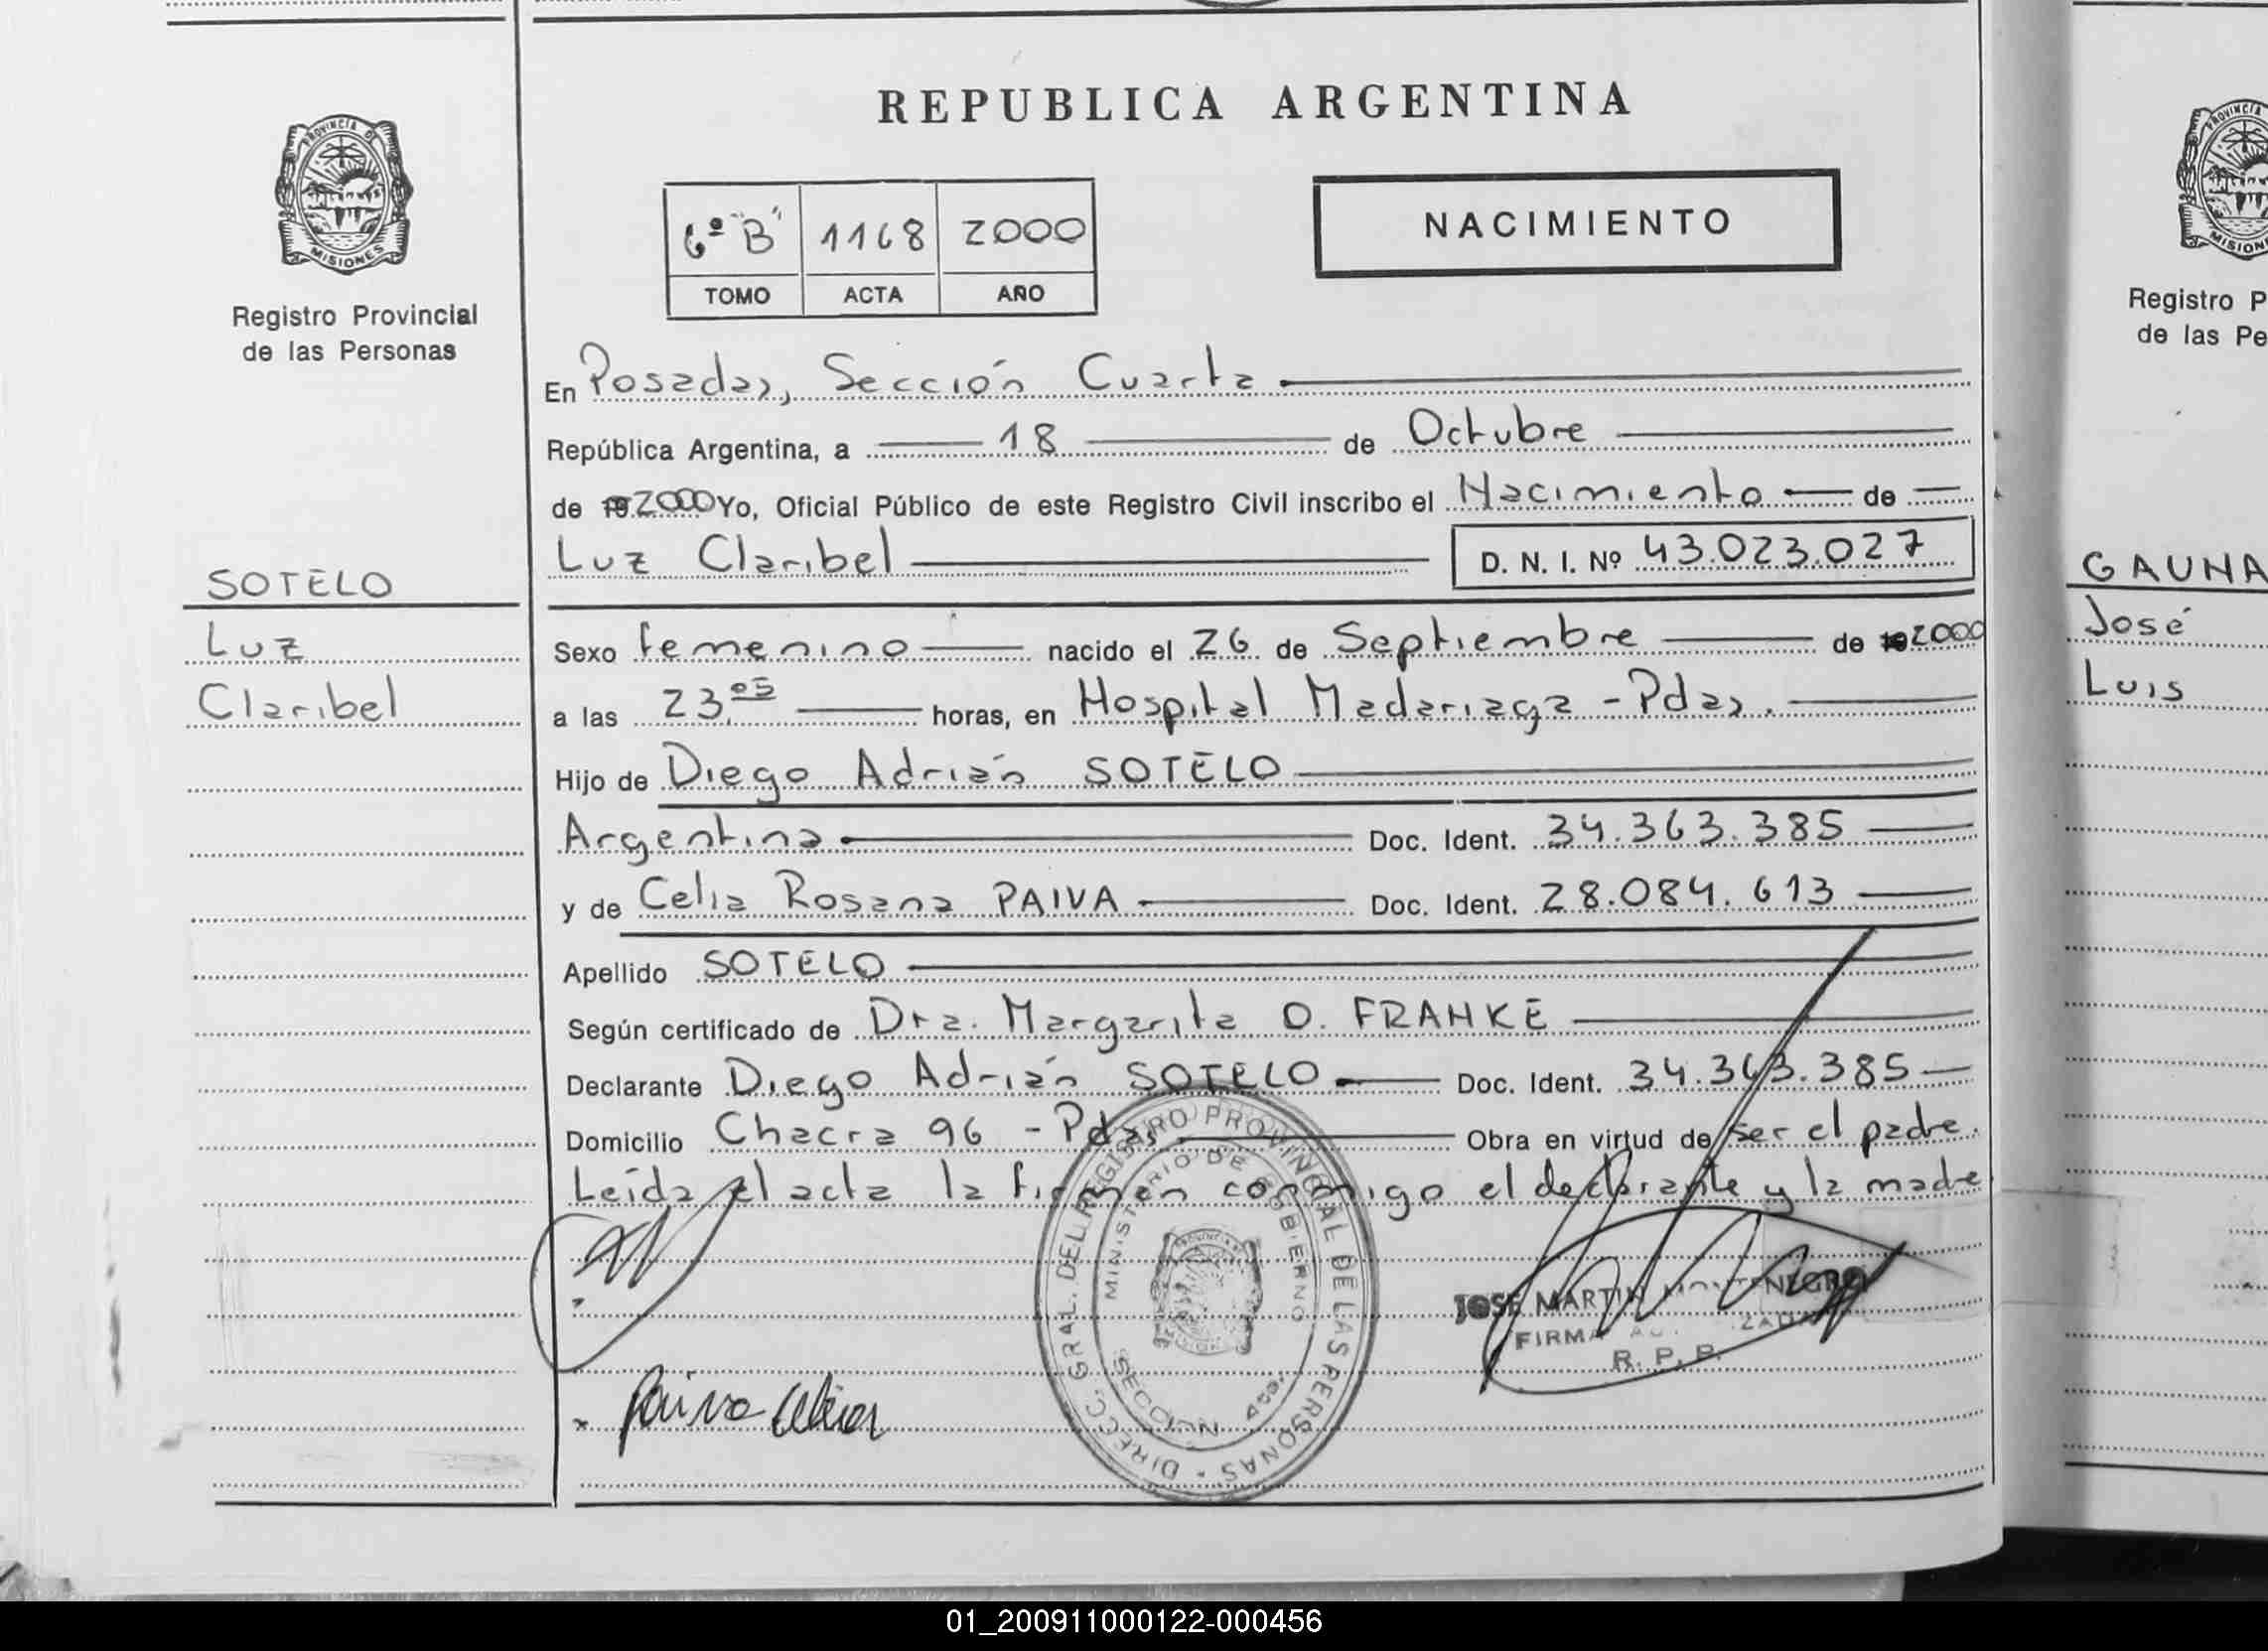 REPUBLICA ARGENTINA
PROVINCIA DE
MISIONES
Registro Provincial
de las Personas
6º "B" 1168 2000
TOMO ACTA AÑO
NACIMIENTO
En Posadas, Sección Cuarta
República Argentina, a 18 de Octubre
de 19 2000 Yo, Oficial Público de este Registro Civil inscribo el Nacimiento de
Luz Claribel D. N. I. Nº 43.023.027
SOTELO
Luz
Claribel
Sexo femenino nacido el 26 de Septiembre de 19 2000
a las 23,05 horas, en Hospital Madariaga - Pdas.
Hijo de Diego Adrián SOTELO
Argentina Doc. Ident. 34.363.385
y de Celia Rosana PAIVA Doc. Ident. 28.084.613
Apellido SOTELO
Según certificado de Dra. Margarita O. FRANKE
Declarante Diego Adrián SOTELO Doc. Ident. 34.363.385
Domicilio Chacra 96 - Pdas, Obra en virtud de ser el padre.
Leída el acta la firman conmigo el declarante y la madre
DIRECC. GRAL. DEL REGISTRO PROVINCIAL DE LAS PERSONAS
MINISTERIO DE GOBIERNO
SECCION 4ta.
JOSE MARTIN MONTENEGRO
FIRMA AUTORIZADA
R. P. P.
Paiva Celia
Registro P
de las Pe
MISION
GAUNA
José
Luis
01_200911000122-000456